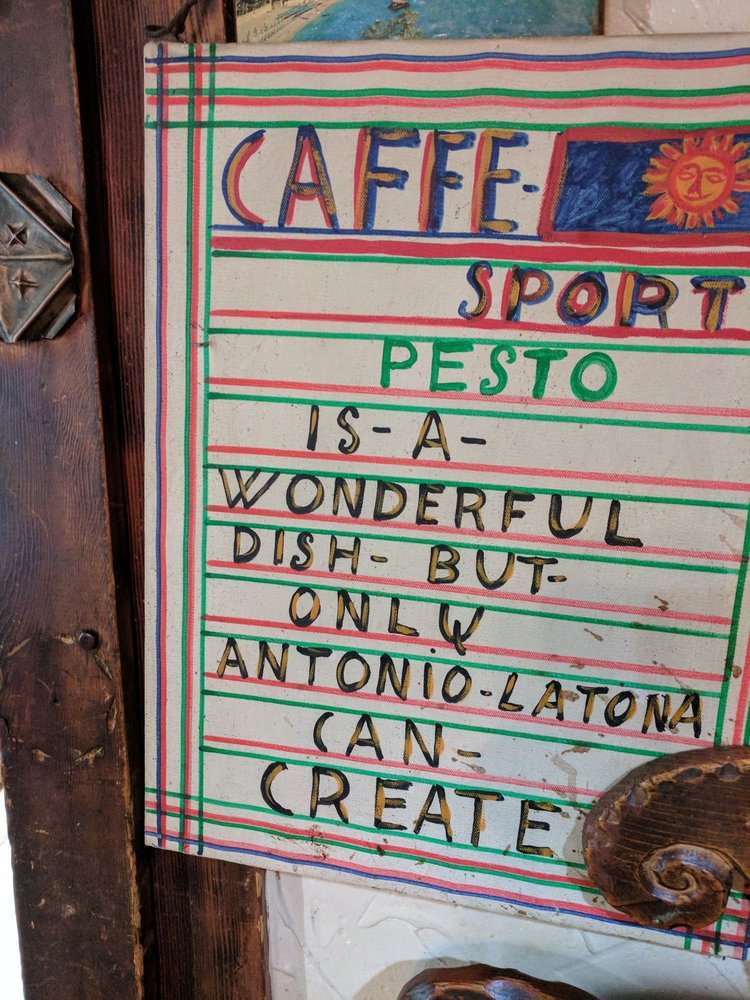 CAFFE-
SPORT
PESTO
IS-A-
WONDERFUL
DISH- BUT-
ONLY
ANTONIO-LATONA
CAN-
CREATE